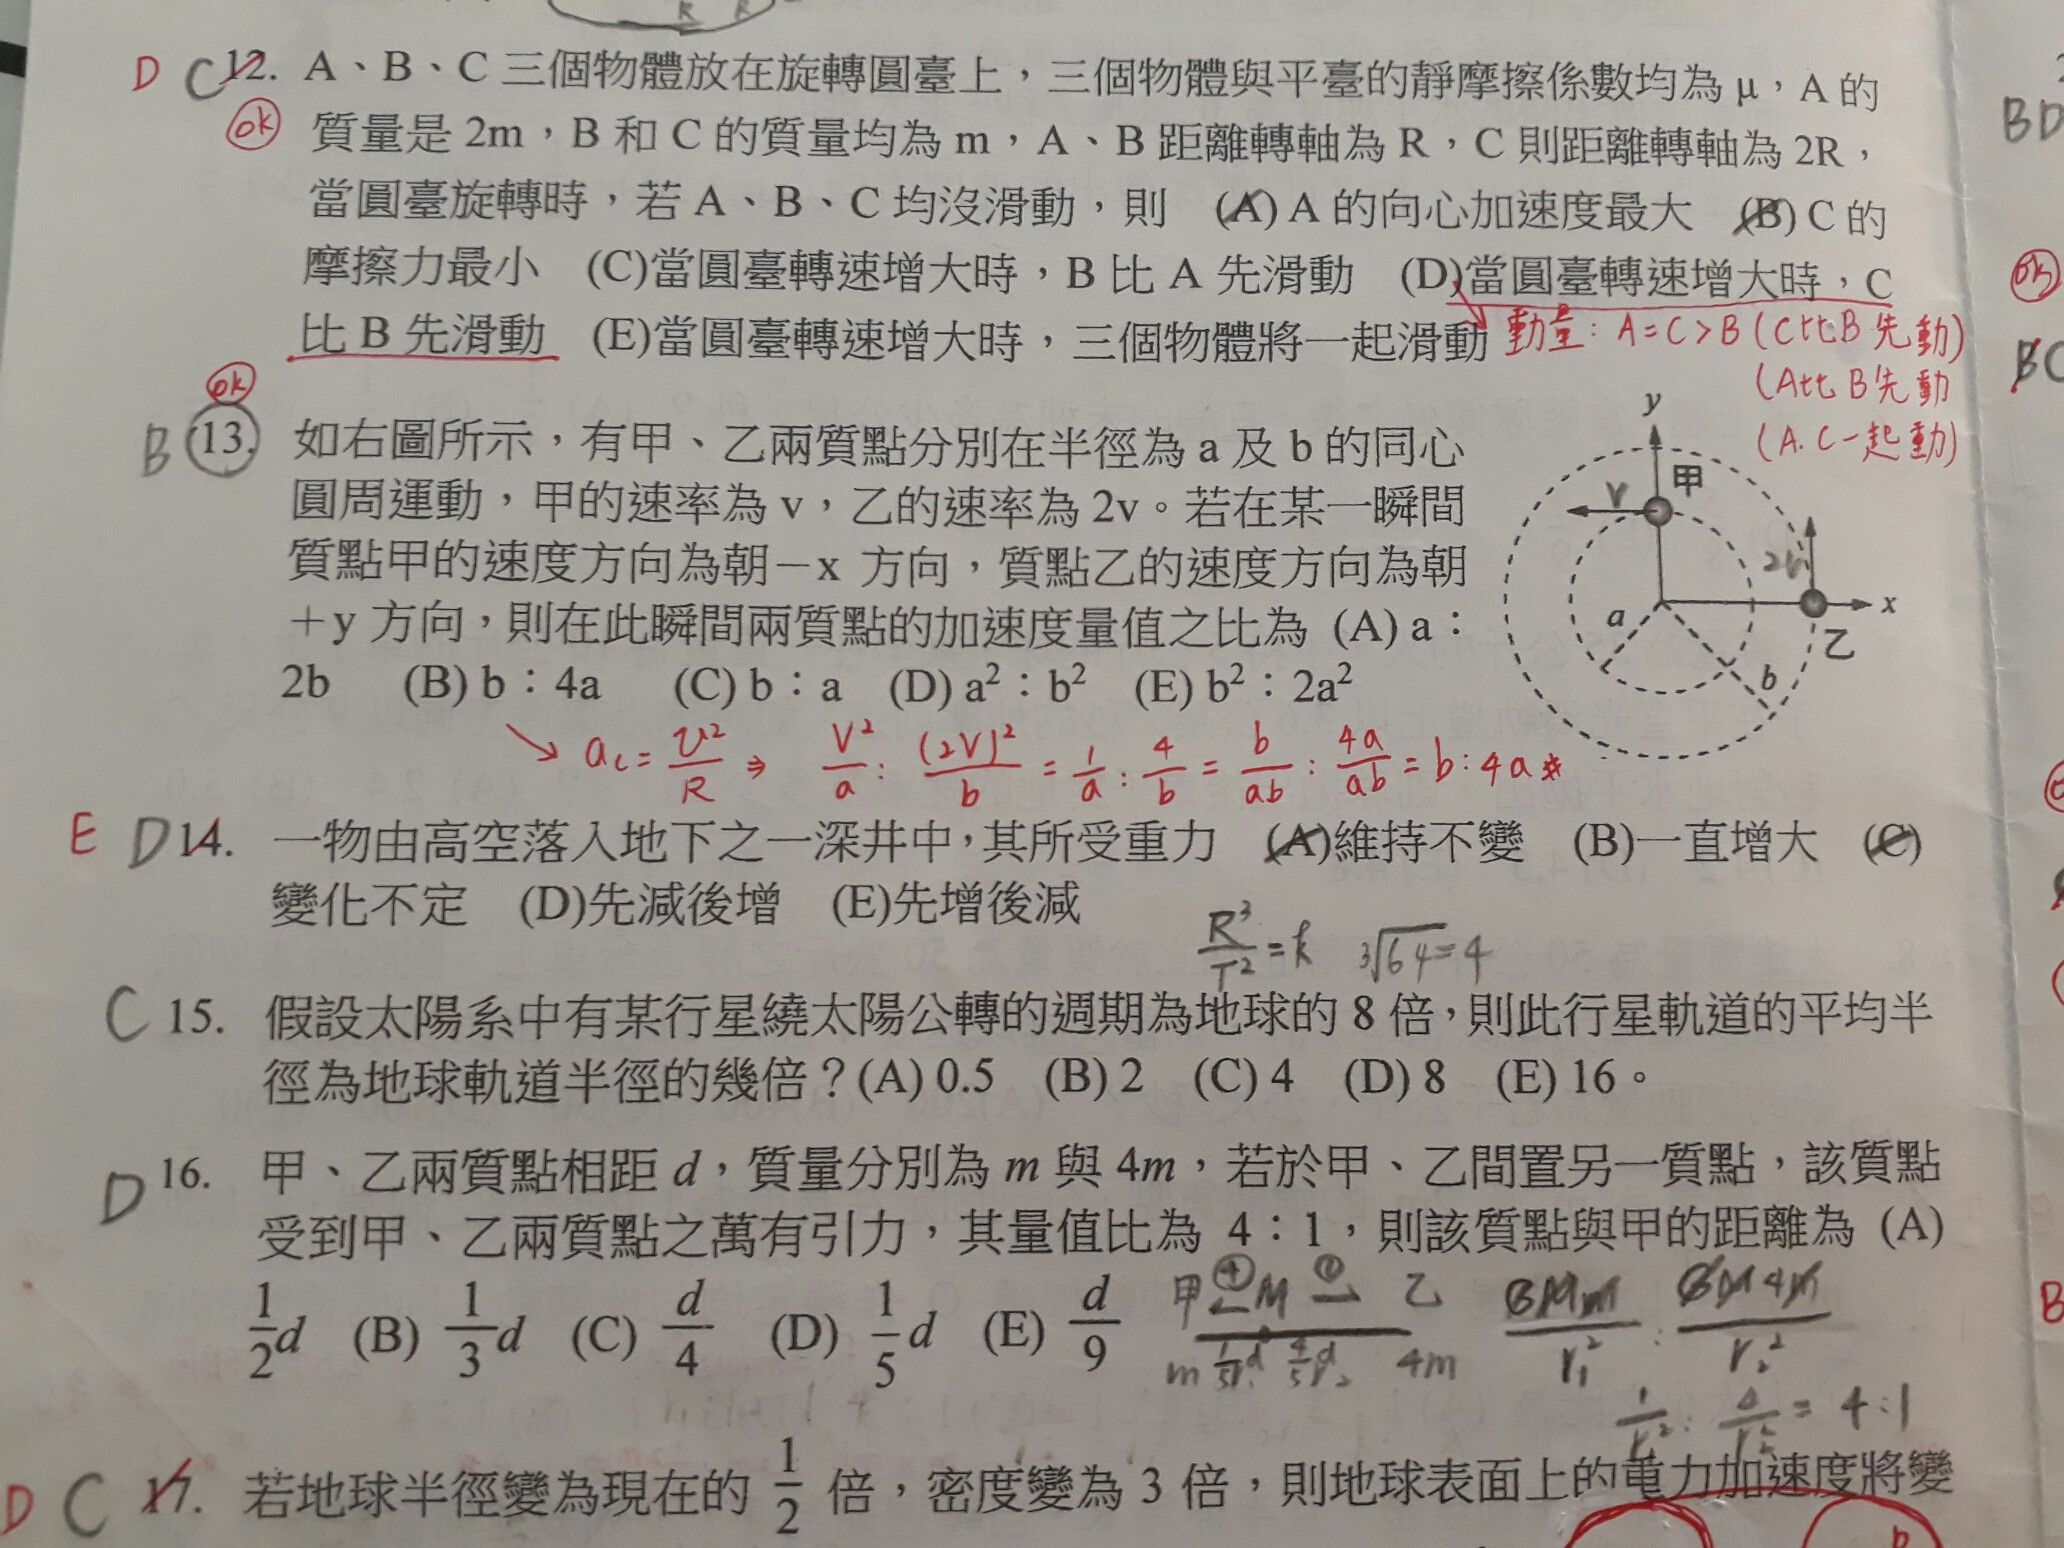 D C 12. A、B、C 三個物體放在旋轉圓臺上，三個物體與平臺的靜摩擦係數均為 μ，A 的
ok 質量是 2m，B 和 C 的質量均為 m，A、B 距離轉軸為 R，C 則距離轉軸為 2R，
當圓臺旋轉時，若 A、B、C 均沒滑動，則 (A) A 的向心加速度最大 (B) C 的
摩擦力最小 (C)當圓臺轉速增大時，B 比 A 先滑動 (D)當圓臺轉速增大時，C
比 B 先滑動 (E)當圓臺轉速增大時，三個物體將一起滑動
動量：A=C>B (C比B先動)
(A比B先動
(A.C一起動)
ok
B 13. 如右圖所示，有甲、乙兩質點分別在半徑為 a 及 b 的同心
圓周運動，甲的速率為 v，乙的速率為 2v。若在某一瞬間
質點甲的速度方向為朝－x 方向，質點乙的速度方向為朝
＋y 方向，則在此瞬間兩質點的加速度量值之比為 (A) a：
2b (B) b：4a (C) b：a (D) a²：b² (E) b²：2a²
y
甲
v
2v
x
乙
a
b
ac = v²/R ⇒ V²/a : (2V)²/b = 1/a : 4/b = b/ab : 4a/ab = b:4a
E D 14. 一物由高空落入地下之一深井中，其所受重力 (A)維持不變 (B)一直增大 (C)
變化不定 (D)先減後增 (E)先增後減
R³/T² = k ³√64=4
C 15. 假設太陽系中有某行星繞太陽公轉的週期為地球的 8 倍，則此行星軌道的平均半
徑為地球軌道半徑的幾倍？(A) 0.5 (B) 2 (C) 4 (D) 8 (E) 16。
D 16. 甲、乙兩質點相距 d，質量分別為 m 與 4m，若於甲、乙間置另一質點，該質點
受到甲、乙兩質點之萬有引力，其量值比為 4：1，則該質點與甲的距離為 (A)
1/2 d (B) 1/3 d (C) d/4 (D) 1/5 d (E) d/9
甲 ④ M ① 乙
m 4m
GMm/r₁² : GM4m/r₂²
= 4:1
D C 17. 若地球半徑變為現在的 1/2 倍，密度變為 3 倍，則地球表面上的重力加速度將變
BD
ok
BC
B